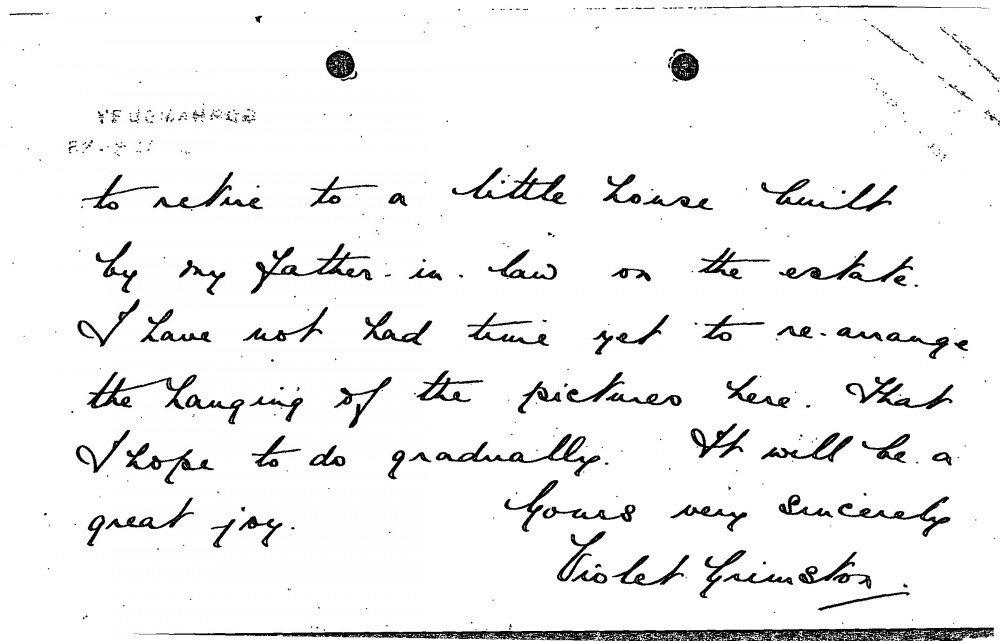 to retire to a little house built
by my father-in-law on the estate.
I have not had time yet to re-arrange
the hanging of the pictures here. That
I hope to do gradually. It will be a
great joy.
Yours very sincerely
Violet Grimston.